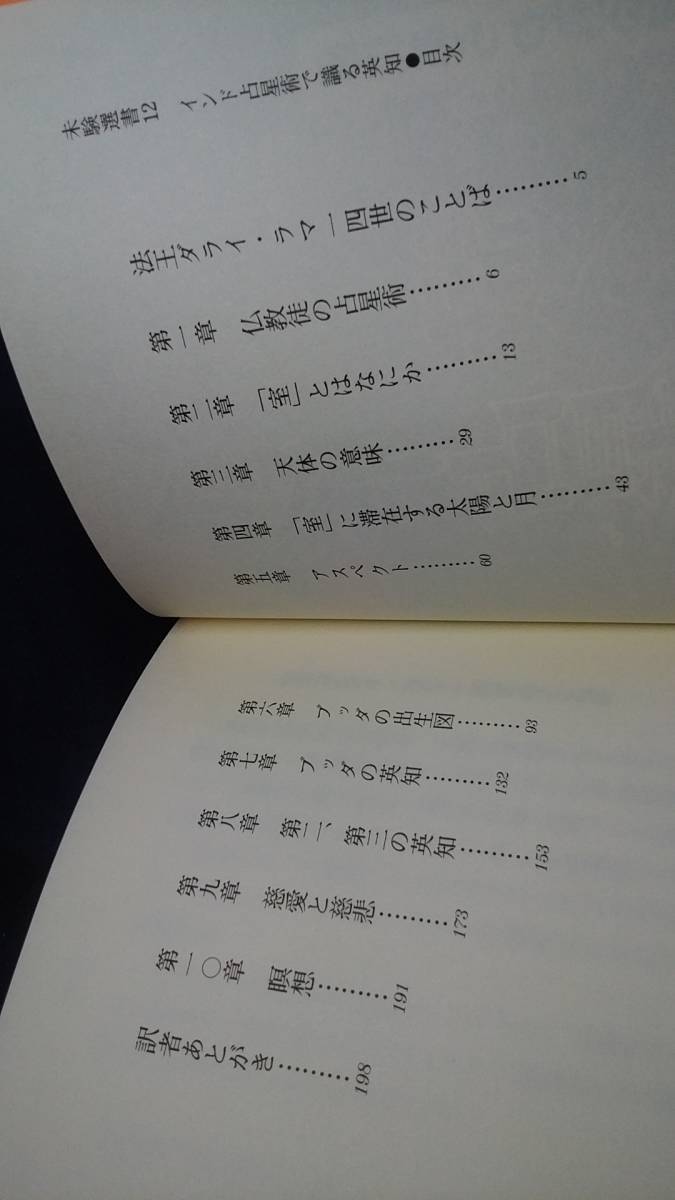 未験選書12 インド占星術で識る英知●目次
法王ダライ・ラマ一四世のことば………5
第一章 仏教徒の占星術………6
第二章 「室」とはなにか………13
第三章 天体の意味………29
第四章 「室」に滞在する太陽と月………43
第五章 アスペクト………60
第六章 ブッダの出生図………93
第七章 ブッダの英知………132
第八章 第二、第三の英知………153
第九章 慈愛と慈悲………173
第一〇章 瞑想………191
訳者あとがき………198